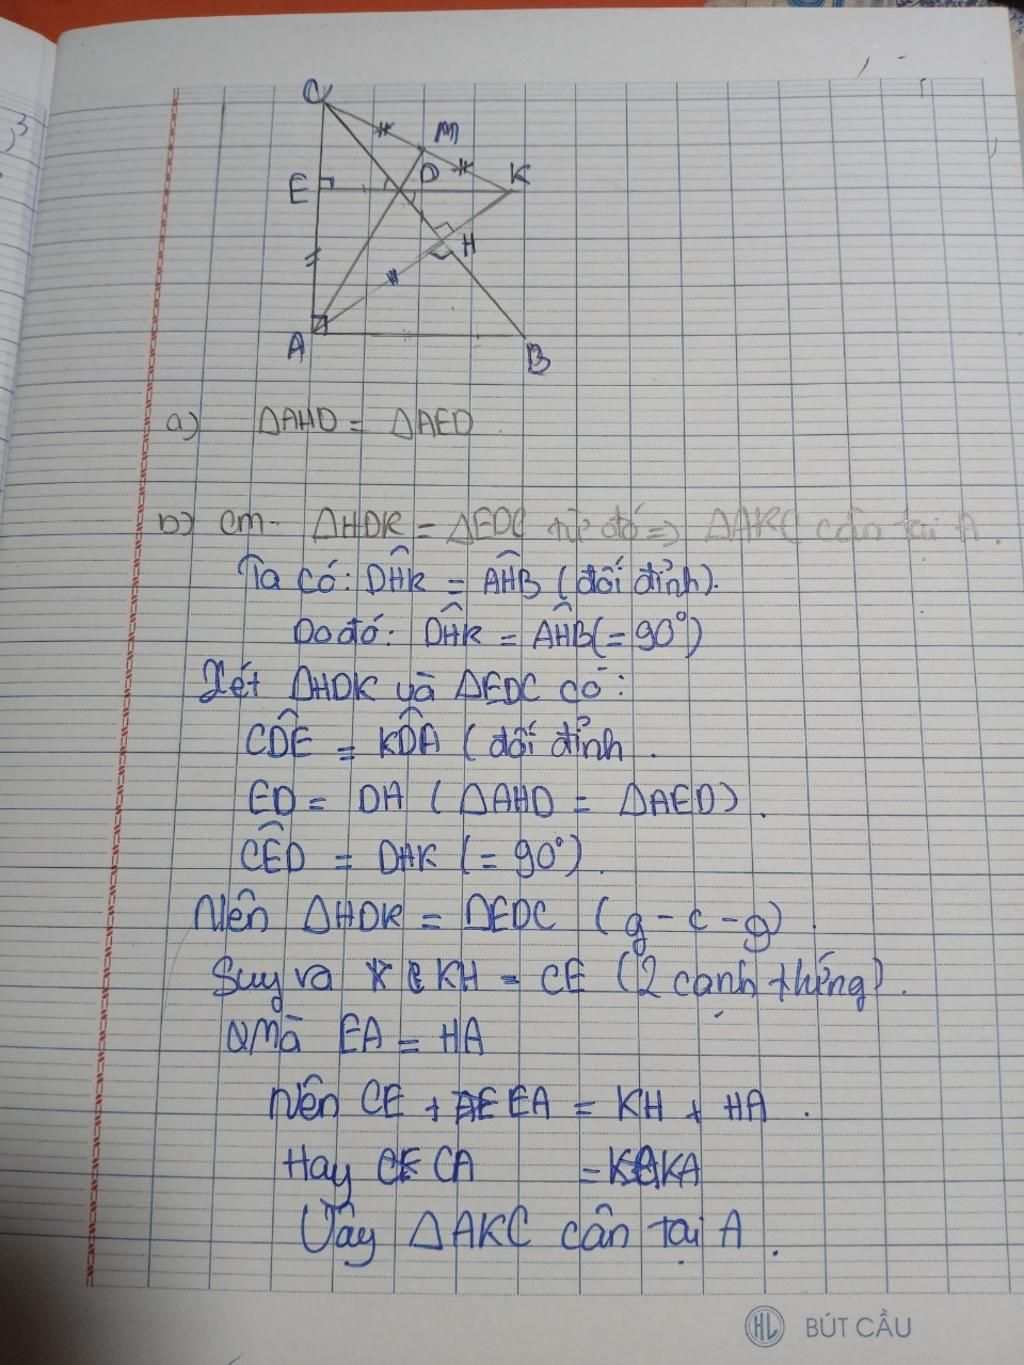 C
M
E
D
K
H
A
B
a) ΔAHD = ΔAED
b) cm. ΔHDK = ΔEDC từ đó => ΔAKC cân tại A.
Ta có: DHK = AHB (đối đỉnh).
Do đó: DHK = AHB (= 90°)
Xét ΔHDK và ΔEDC có:
CDE = KDA (đối đỉnh.
ED = DA (ΔAHD = ΔAED).
CED = DHK (= 90°).
Nên ΔHDK = ΔEDC (g - c - g)
Suy ra KH = CE (2 cạnh t/ứng).
Mà EA = HA
Nên CE + EA = KH + HA.
Hay CA = KA
Vậy ΔAKC cân tại A.
HL BÚT CẦU